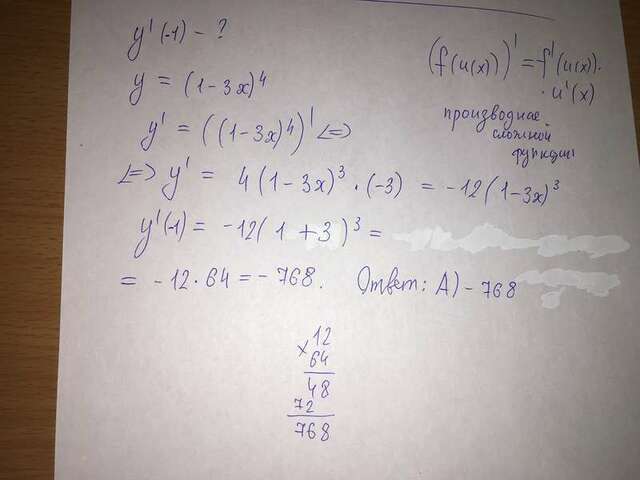 y'(-1) - ?
y = (1-3x)⁴
y' = ((1-3x)⁴)' <=>
<=> y' = 4(1-3x)³ · (-3) = -12(1-3x)³
y'(-1) = -12(1+3)³ =
= -12·64 = -768. Ответ: А) -768
(f(u(x)))' = f'(u(x))·
· u'(x)
производная
сложной
функции
×12
64
48
72
768